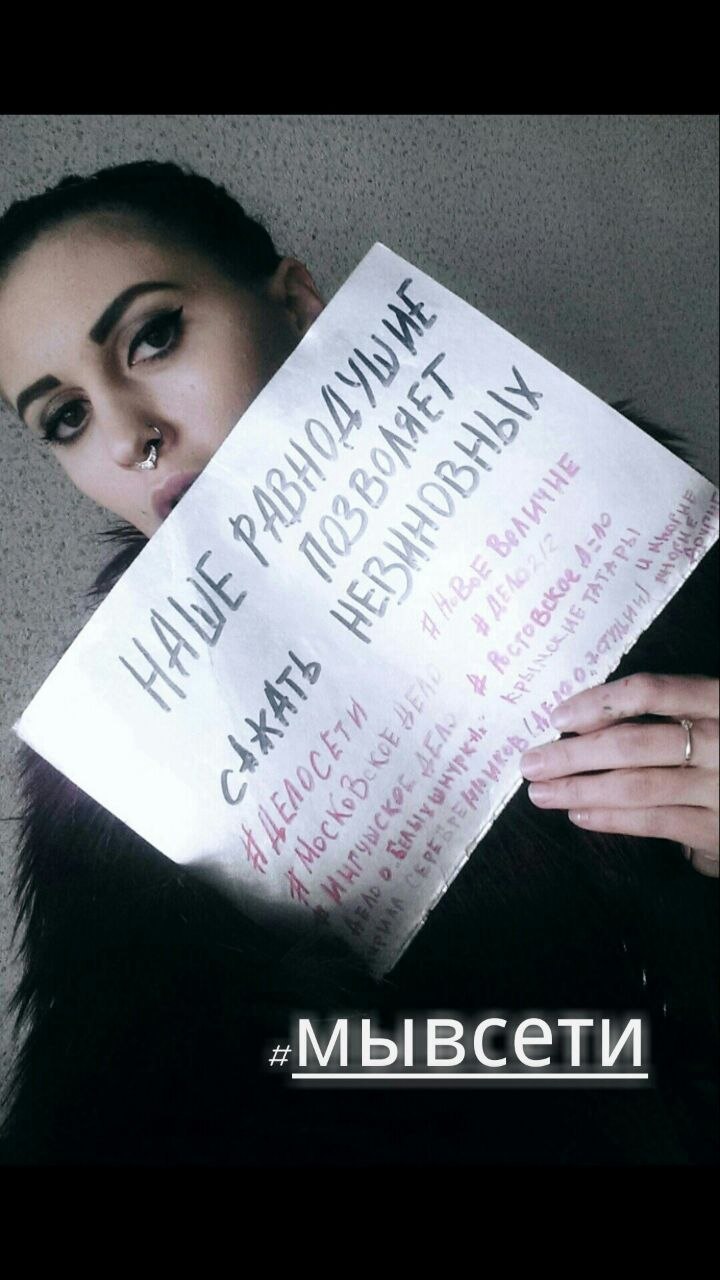 НАШЕ РАВНОДУШИЕ
ПОЗВОЛЯЕТ
САЖАТЬ НЕВИНОВНЫХ
#ДЕЛОСЕТИ #НОВОЕ ВЕЛИЧИЕ
#МОСКОВСКОЕ ДЕЛО #ДЕЛО212
#ИНГУШСКОЕ ДЕЛО #РОСТОВСКОЕ ДЕЛО
ДЕЛО О "БЕЛЫХ ШНУРКАХ" КРЫМСКИЕ ТАТАРЫ
КИРИЛЛ СЕРЕБРЕННИКОВ (ДЕЛО О И МНОГИЕ
МНОГИЕ
ДРУГИЕ
#мывсети